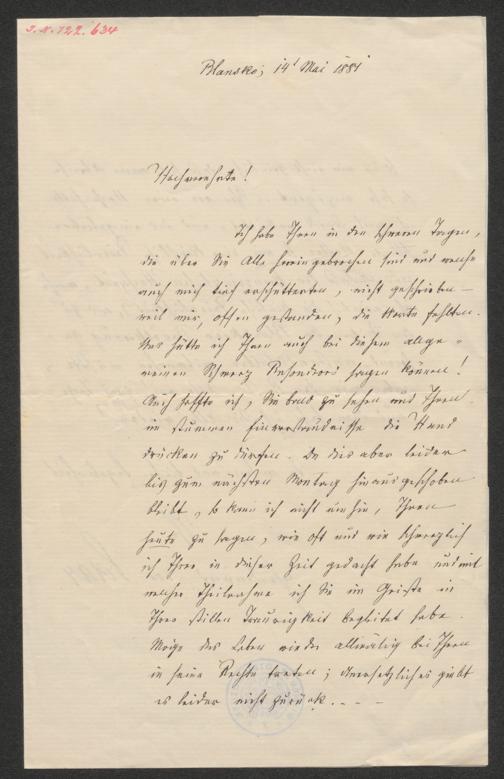 J.N. 722.634
Blansko; 14t Mai 1881
Hochverehrte!
Ich habe Ihnen in den schweren Tagen,
die über Sie Alle hereingebrochen sind und welche
auch mich tief erschütterten, nicht geschrieben –
weil mir, offen gestanden, die Worte fehlten.
Was hätte ich Ihnen auch bei diesem allge-
meinen Schmerz Besonderes sagen können!
Auch hoffte ich, Sie bald zu sehen und Ihnen
im stummen Einverständnisse die Hand
drücken zu dürfen. Da dies aber leider
bis zum nächsten Montag hinausgeschoben
bleibt, so kann ich nicht umhin, Ihnen
heute zu sagen, wie oft und wie schmerzlich
ich Ihrer in dieser Zeit gedacht habe und mit
welcher Theilnahme ich Sie im Geiste in
Ihrer stillen Traurigkeit begleitet habe.
Möge das Leben wieder allmälig bei Ihnen
in seine Rechte treten; Unersetzliches giebt
es leider nicht zurück. – – –